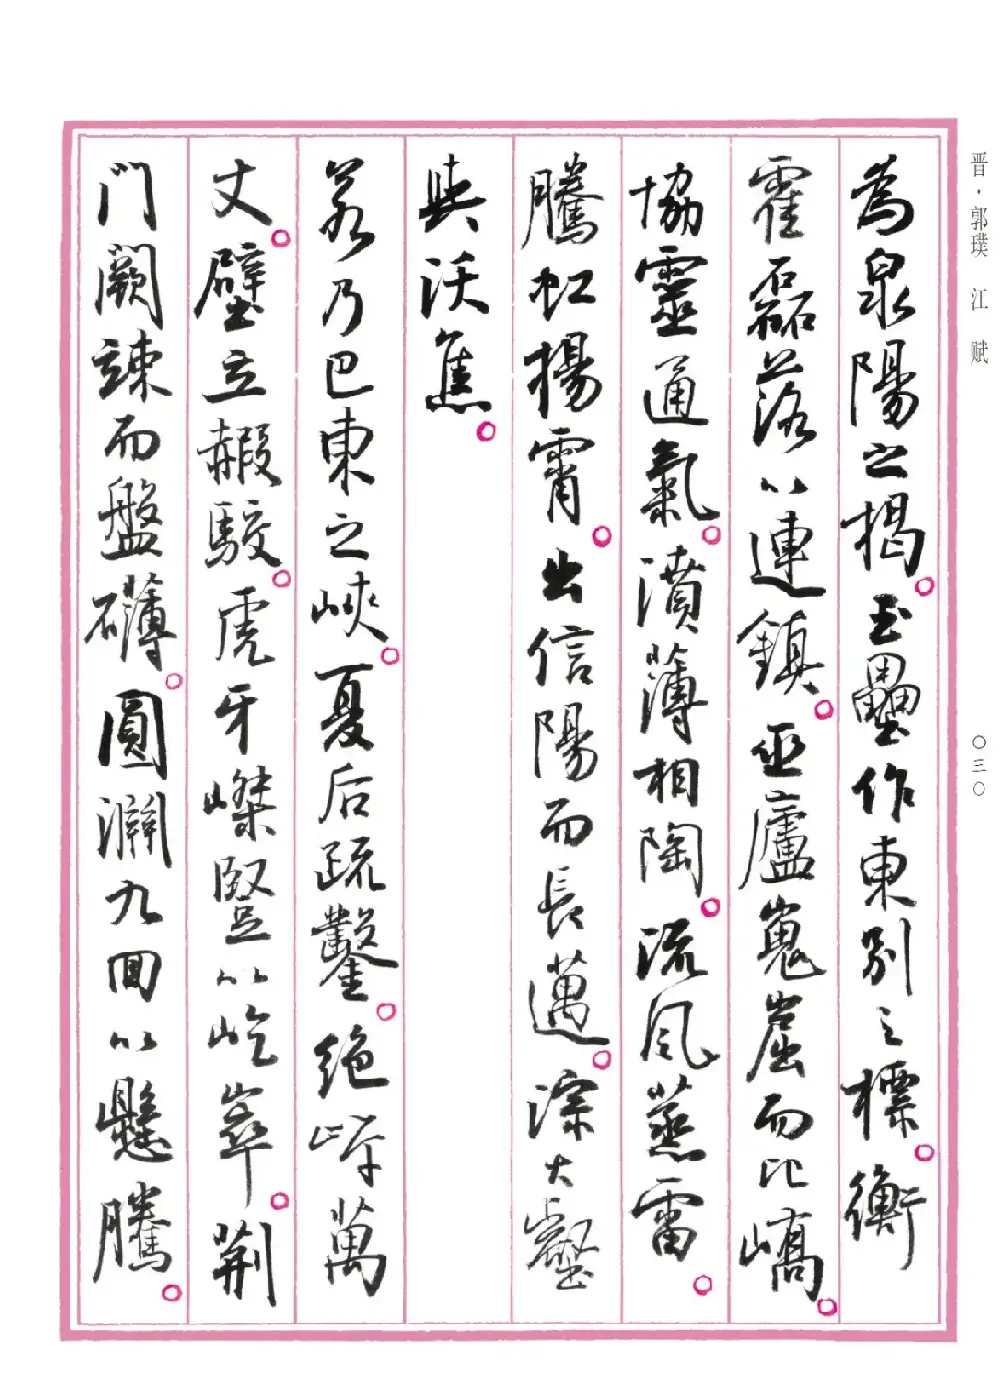 晋·郭璞 江 赋
〇三〇
為泉陽之揭。玉壘作東別之標。衡
霍磊落以連鎮。巫廬嵬崫而比嶠。
協靈通氣。濆薄相陶。流風蒸雷。
騰虹揚霄。出信陽而長邁。淙大壑
與沃焦。
若乃巴東之峽。夏后疏鑿。絕岸萬
丈。壁立赮駮。虎牙嵥豎以屹崒。荊
門闕竦而盤礴。圓淵九回以懸騰。